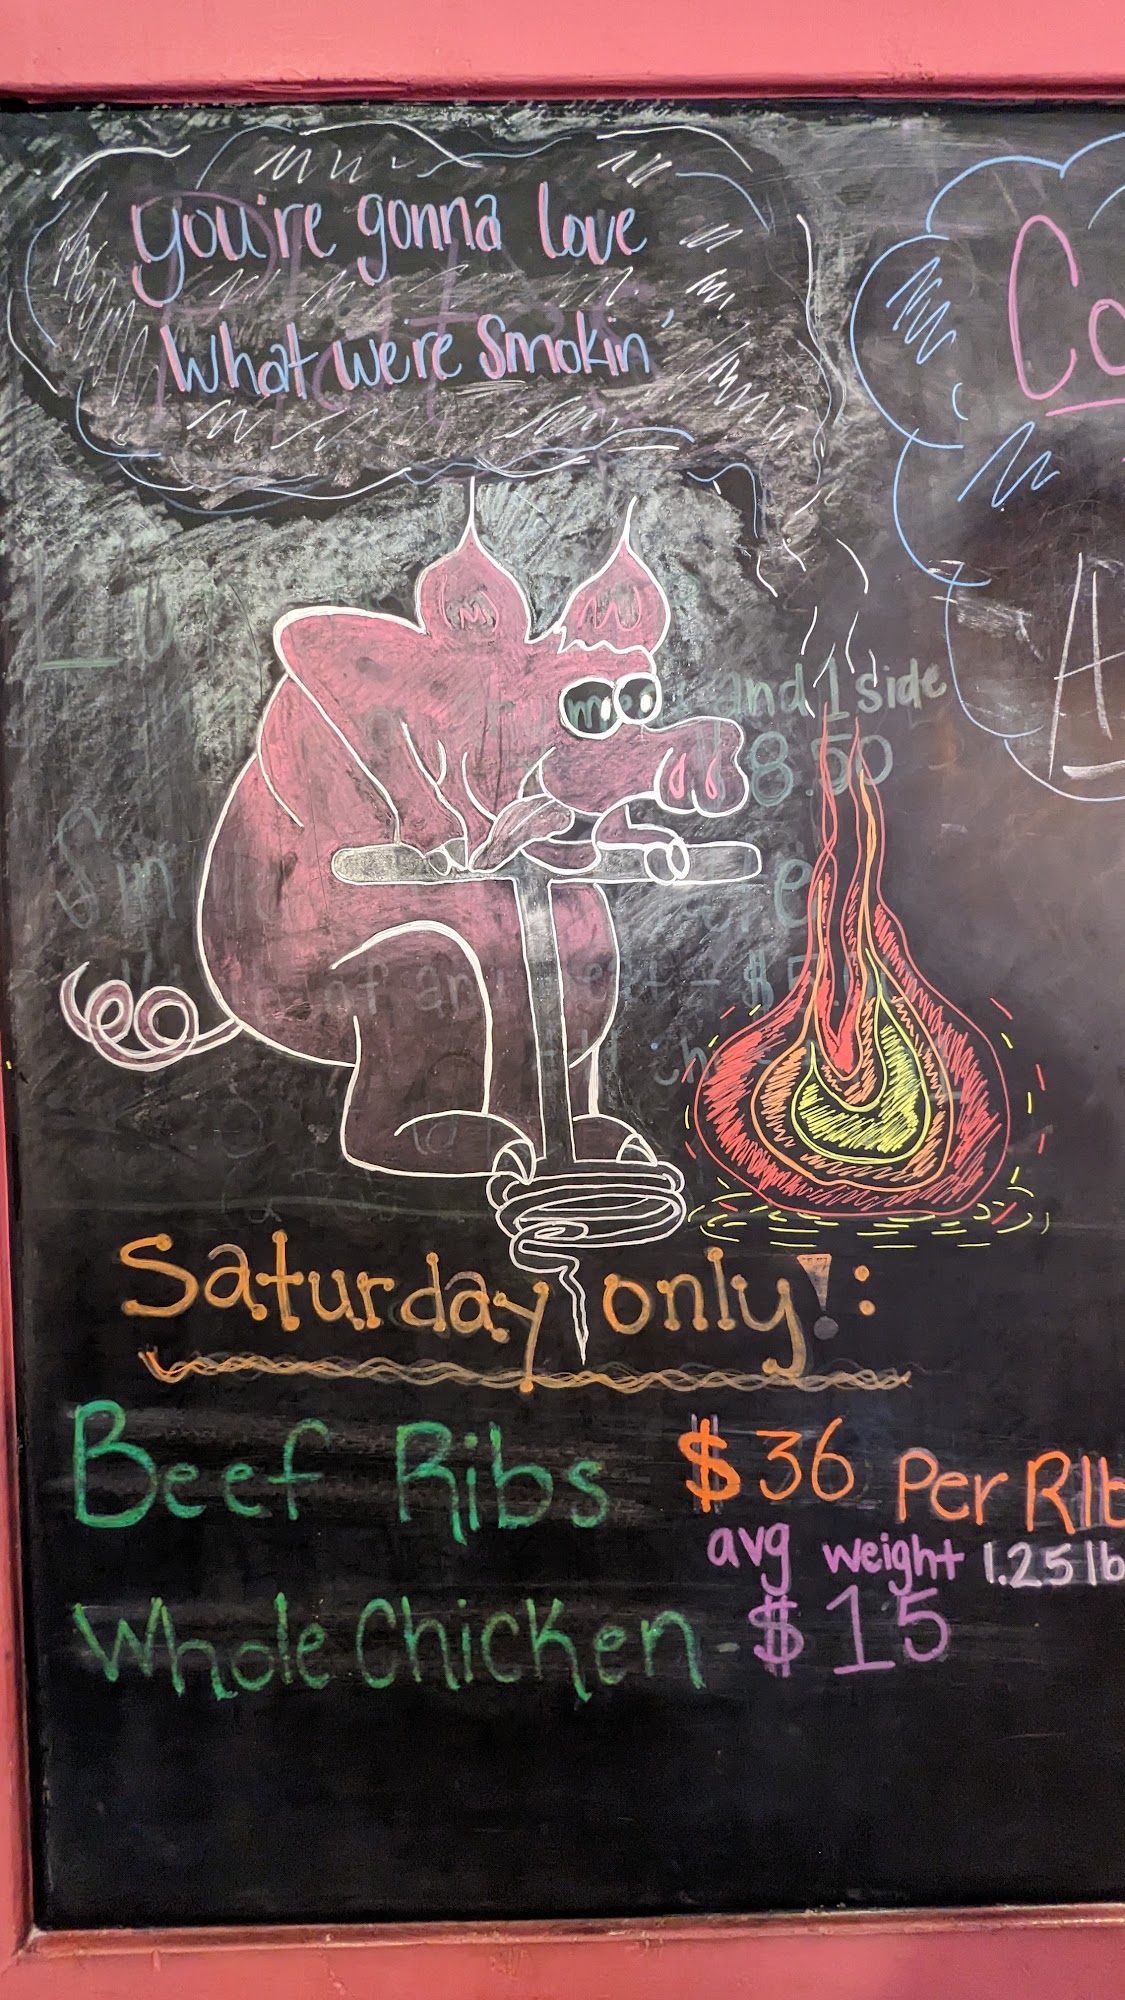 you're gonna love
What we're smokin'
and 1 side
8.50
Saturday only!:
Beef Ribs $36 Per RIb
avg weight 1.25 lb
Whole Chicken - $15